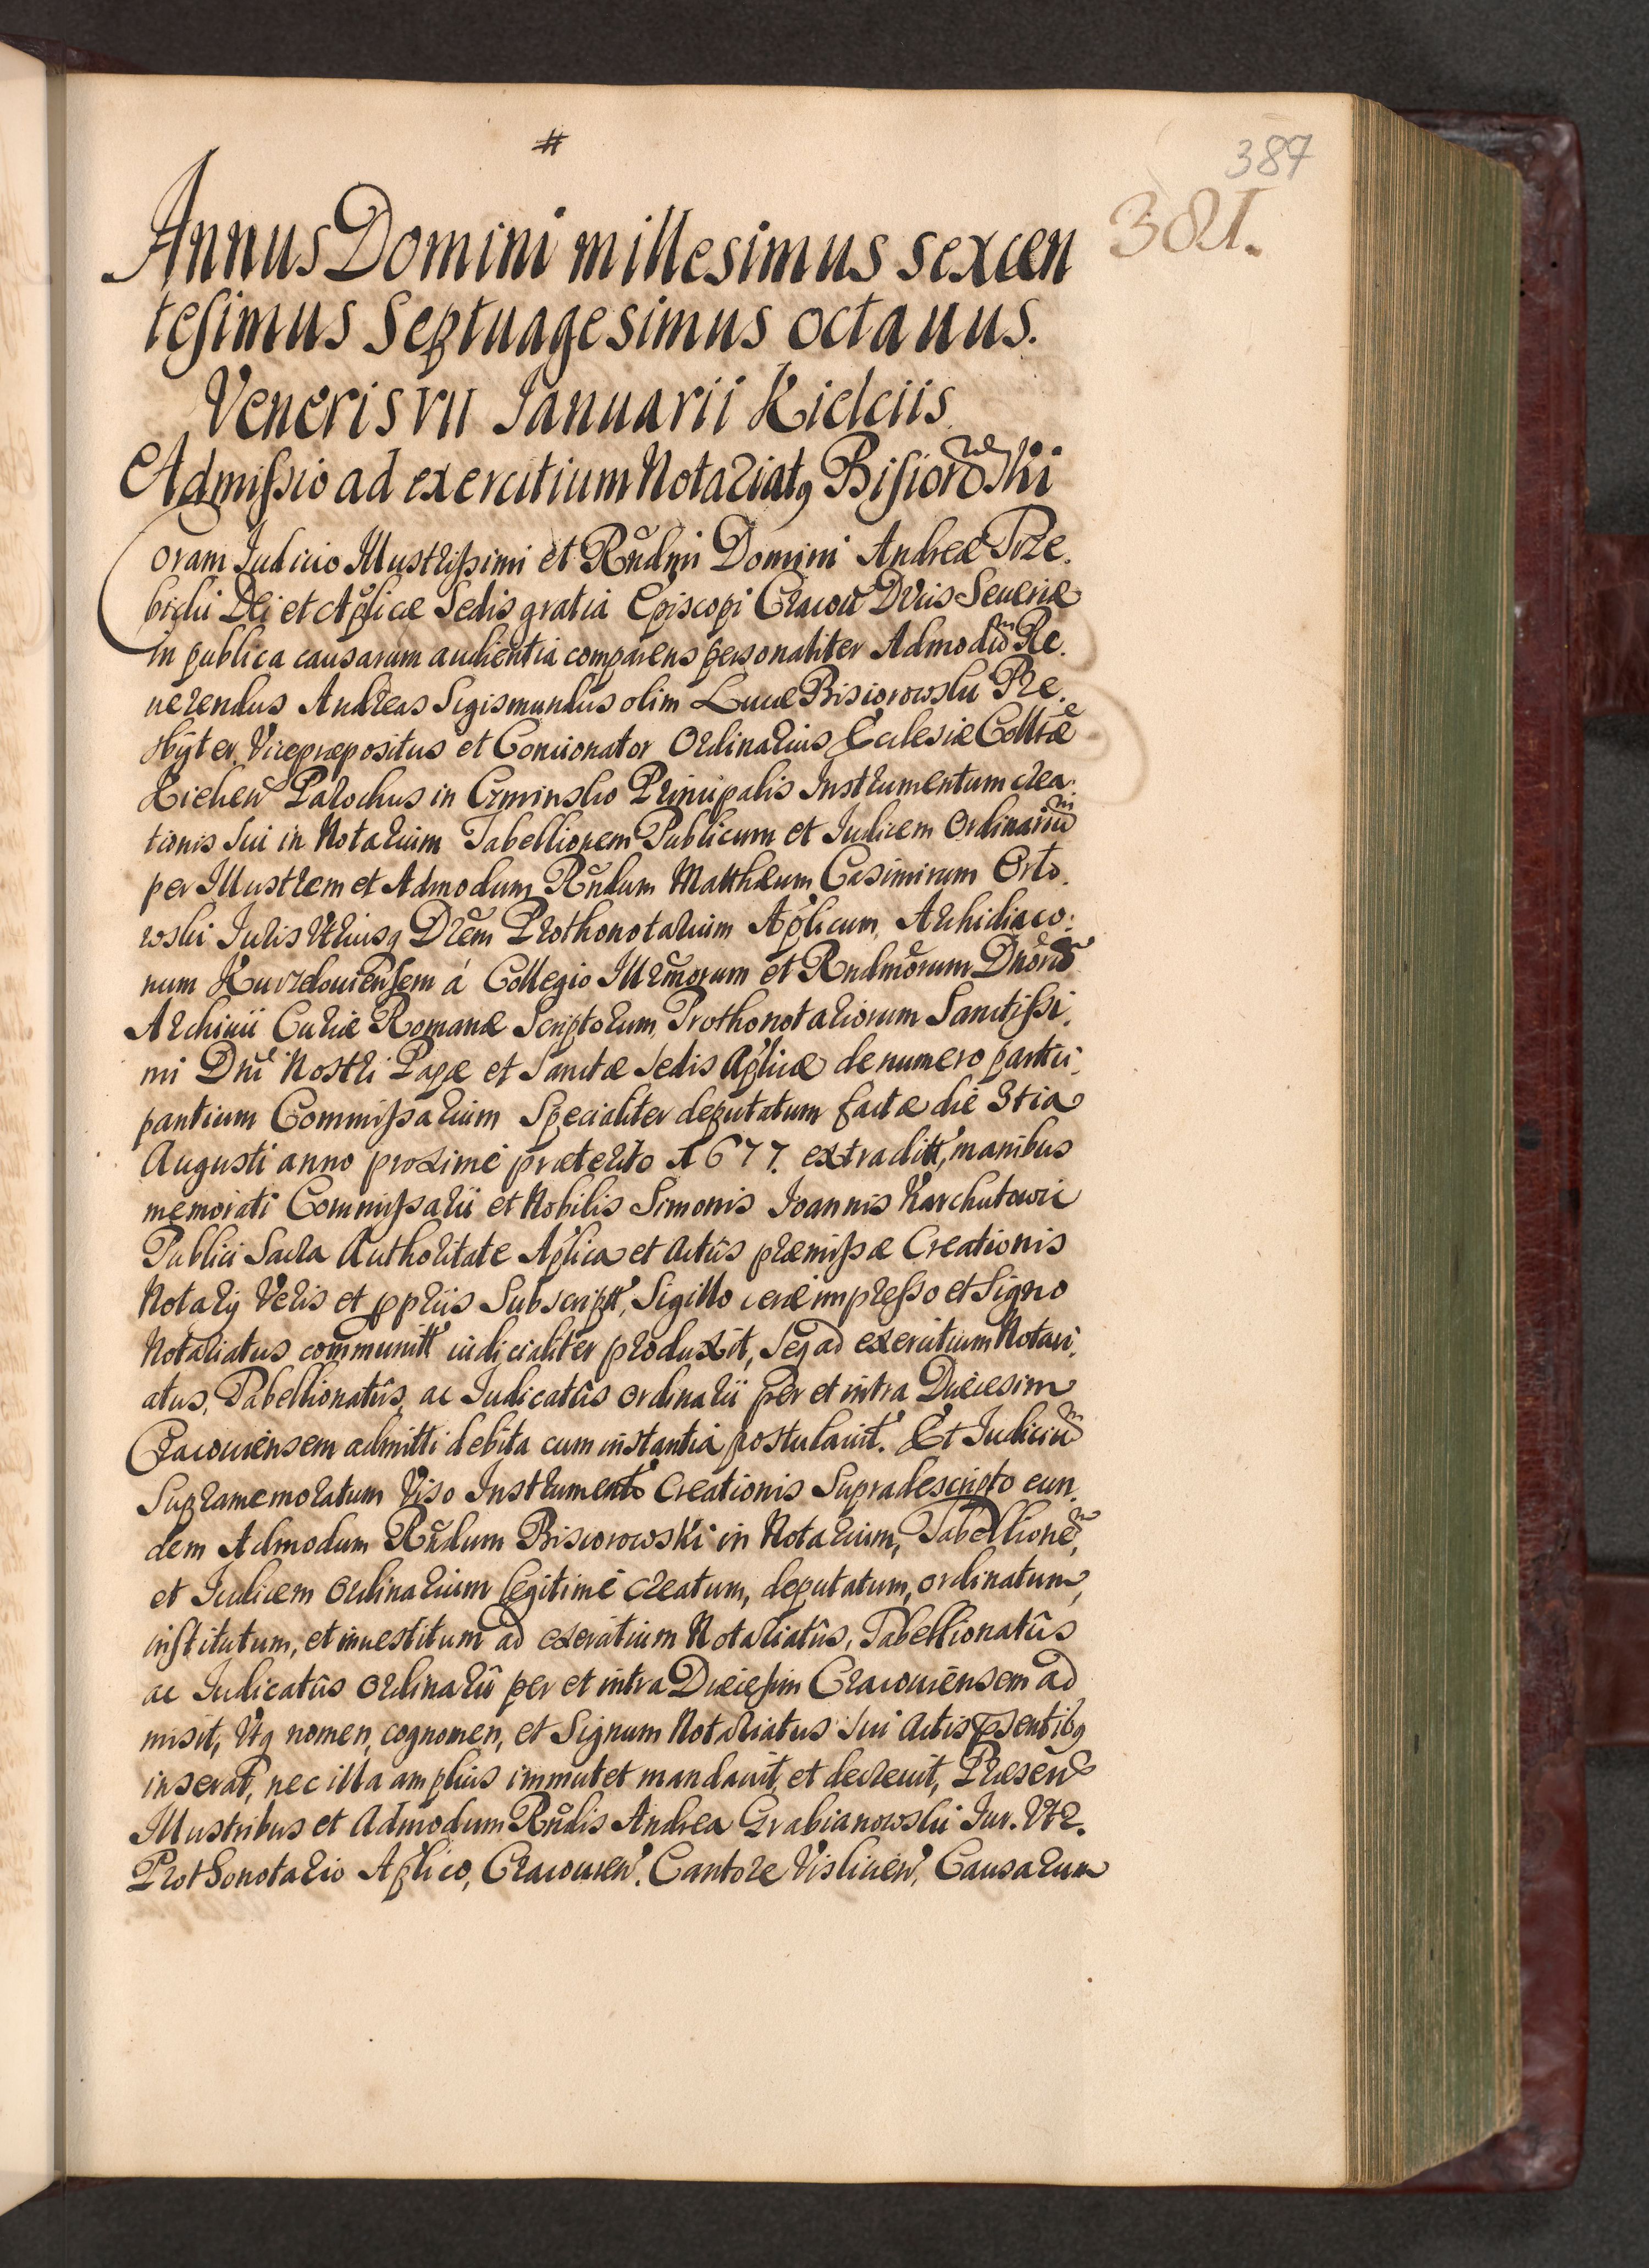 #
387
381.
Annus Domini millesimus sexcen
tesimus septuagesimus octauus.
Veneris VII Ianuarii Kielciis
Admissio ad exercitium Notariatq Bisiorowski
Coram Iudicio Illustrissimi et Rndmi Domini Andreæ Trze.
bicki Dei et Aplicæ Sedis gratia Episcopi Cracou Ducis Seueriæ
in publica causarum audientia comparens personaliter Admodum Re.
uerendus Andreas Sigismundus olim Lucæ Bisiorowski Pre.
sbyter, Vicepræpositus et Concionator Ordinarius Ecclesiæ Colltæ
Kielcen Parochus in Cziminsko Principalis Instrumentum crea.
tionis sui in Notarium Tabellionem Publicum et Iudicem Ordinarium
per Illustrem et Admodum Rndum Matthæum Casimirum Orło.
wski Iuris Vtriusq Drem Prothonotarium Aplicum, Archidiaco.
num Kurzelouiensem á Collegio Illrmorum et Rndmorum Dnorum
Archiuii Curiæ Romanæ Scriptorum, Prothonotariorum Sanctissi.
mi Dni Nostri Papæ et Sanctæ Sedis Aplicæ de numero partici.
pantium Commissarium Specialiter deputatum factæ die 3tia
Augusti anno proximé præterito 1677. extraditt, manibus
memorati Commissarii et Nobilis Simonis Ioannis Karchutowic
Publici Sacra Authoritate Aplica et Actûs præmissæ Creationis
Notarij Veris et ppriis Subscriptt, Sigillo ceræ impresso et Signo
Notariatus communitt iudicialiter produxit, seq ad exercitium Notari.
atus, Tabellionatûs, ac Iudicatûs ordinarii per et intra Diæcesim
Cracouiensem admitti debita cum instantia postulauit. Et Iudicium
Supramemoratum Viso Instrumento Creationis Supradescripto eun.
dem Admodum Rndum Bisiorowski in Notarium, Tabellionem,
et Iudicem Ordinarium legitimé creatum, deputatum, ordinatum,
institutum, et inuestitum ad exercitium Notariatûs, Tabellionatûs
ac Iudicatûs Ordinarii per et intra Diæcesim Cracouiensem ad
misit, Vtq nomen, cognomen, et Signum Notariatus sui Actis psentibq
inserat, nec illa amplius immutet mandauit et decreuit, Præsen
Illustribus et Admodum Rndis Andrea Grabianowski Iur. Vtr.
Prothonotario Aplico, Cracouien. Cantore Vislicien, Causarum